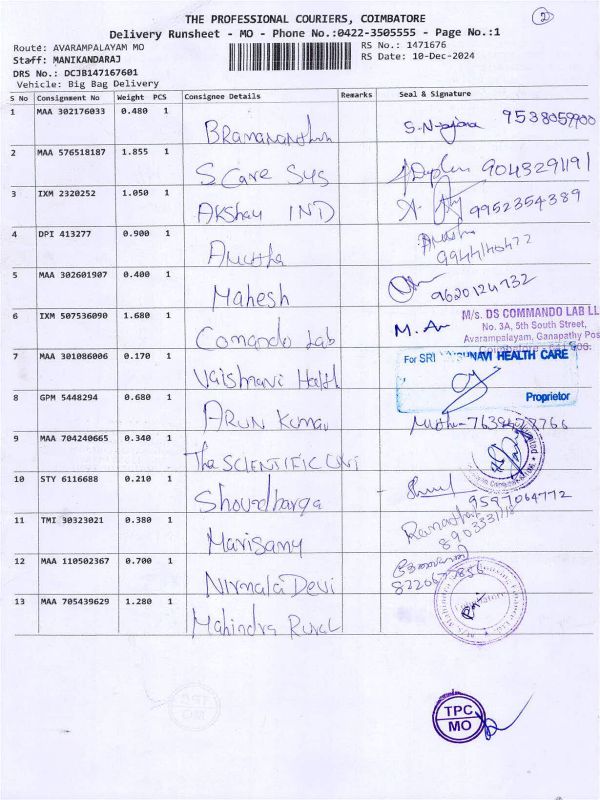 THE PROFESSIONAL COURIERS, COIMBATORE
2
Delivery Runsheet - MO - Phone No.:0422-3505555 - Page No.:1
Route: AVARAMPALAYAM MO
RS No.: 1471676
Staff: MANIKANDARAJ
RS Date: 10-Dec-2024
DRS No.: DCJB147167601
Vehicle: Big Bag Delivery
S No Consignment No Weight PCS Consignee Details Remarks Seal & Signature
1 MAA 302176033 0.480 1 9538059900
2 MAA 576518187 1.855 1 S Care Sys 9043291191
3 IXM 2320252 1.050 1 Akshay IND 9952354389
4 DPI 413277 0.900 1
5 MAA 302601907 0.400 1 Mahesh 9620124732
6 IXM 507536090 1.680 1 Comando Lab M/s. DS COMMANDO LAB LL
No. 3A, 5th South Street,
Avarampalayam, Ganapathy Pos
7 MAA 301086006 0.170 1 For SRI VAISHNAVI HEALTH CARE
Proprietor
8 GPM 5448294 0.680 1 ARUN Kumar
9 MAA 704240665 0.340 1 The SCIENTIFIC
10 STY 6116688 0.210 1 9597064772
11 TMI 30323021 0.380 1 Marisamy
12 MAA 110502367 0.700 1 Nirmala Devi
13 MAA 705439629 1.280 1 Mahindra Rural
TPC
MO